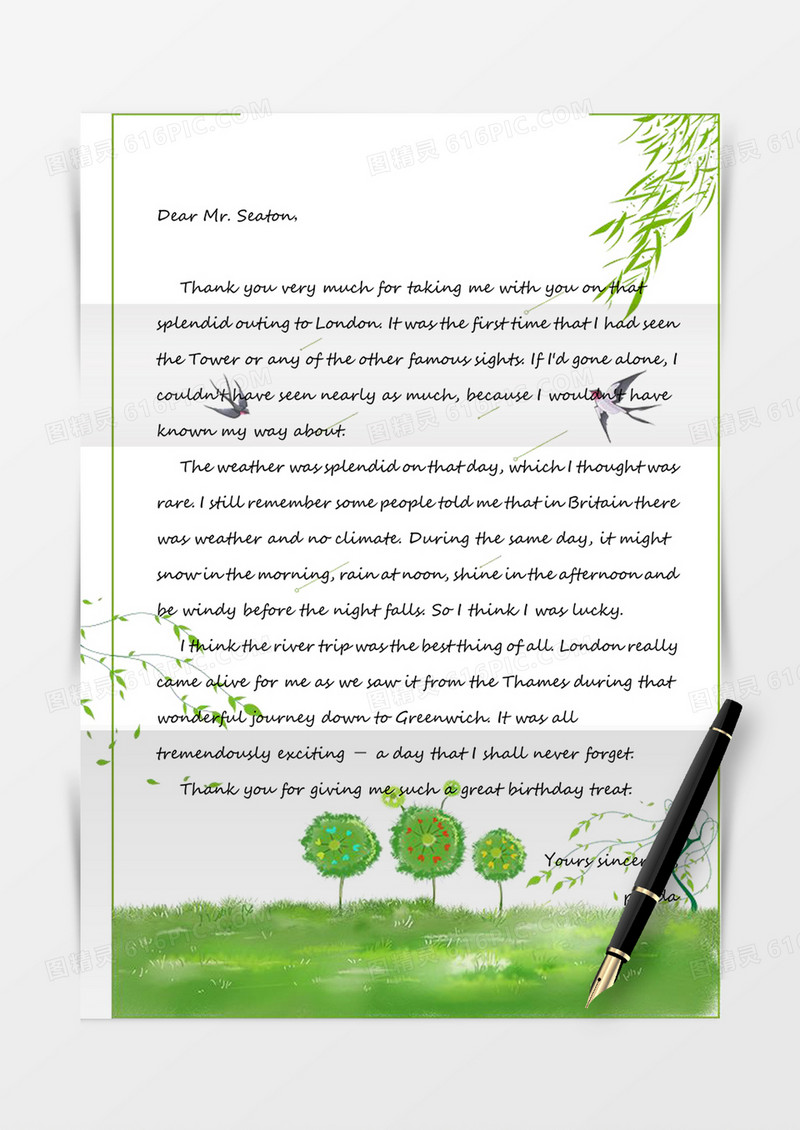 Dear Mr. Seaton,
Thank you very much for taking me with you on that
splendid outing to London. It was the first time that I had seen
the Tower or any of the other famous sights. If I'd gone alone, I
couldn't have seen nearly as much, because I wouldn't have
known my way about.
The weather was splendid on that day, which I thought was
rare. I still remember some people told me that in Britain there
was weather and no climate. During the same day, it might
snow in the morning, rain at noon, shine in the afternoon and
be windy before the night falls. So I think I was lucky.
I think the river trip was the best thing of all. London really
came alive for me as we saw it from the Thames during that
wonderful journey down to Greenwich. It was all
tremendously exciting — a day that I shall never forget.
Thank you for giving me such a great birthday treat.
Yours